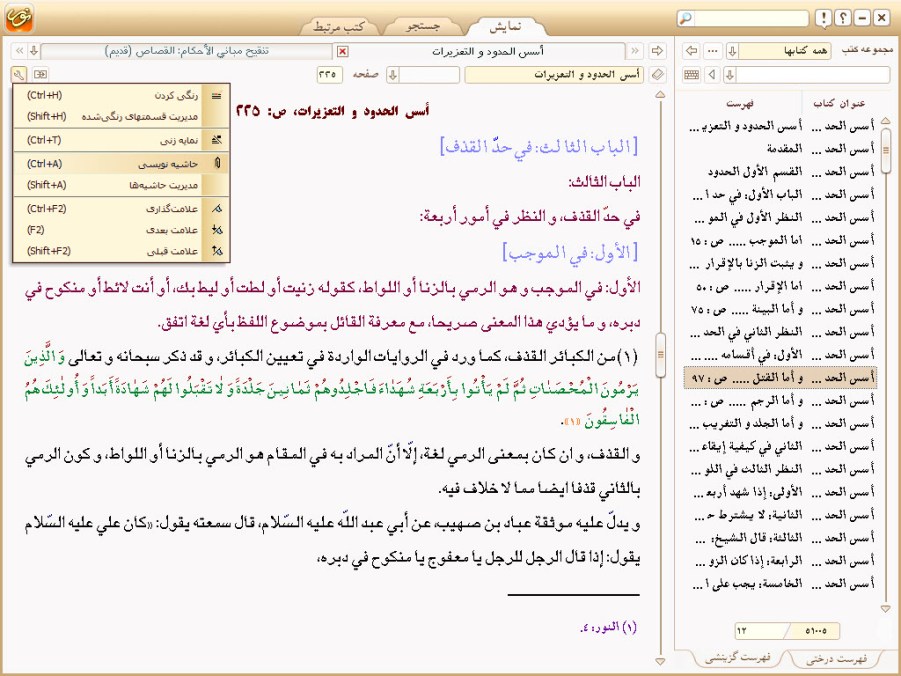 نمایش
جستجو
کتب مرتبط
مجموعه کتب
همه کتابها
أسس الحدود و التعزیرات
تنقیح مباني الأحکام: القصاص (قدیم)
أسس الحدود و التعزیرات
صفحه
۲۳۵
رنگی کردن (Ctrl+H)
مدیریت قسمتهای رنگی‌شده (Shift+H)
نمایه زنی (Ctrl+T)
حاشیه نویسی (Ctrl+A)
مدیریت حاشیه‌ها (Shift+A)
علامت‌گذاری (Ctrl+F2)
علامت بعدی (F2)
علامت قبلی (Shift+F2)
أسس الحدود و التعزیرات، ص: ۲۳۵
[الباب الثالث: في حدّ القذف]
الباب الثالث:
في حدّ القذف، و النظر في أمور أربعة:
[الأول: في الموجب]
الأول: في الموجب و هو الرمي بالزنا أو اللواط، کقوله زنیت أو لطت أو لیط بك، أو أنت لائط أو منکوح في
دبره، و ما یؤدي هذا المعنی صریحا، مع معرفة القائل بموضوع اللفظ بأي لغة اتفق.
(۱) من الکبائر القذف، کما ورد في الروایات الواردة في تعیین الکبائر، و قد ذکر سبحانه و تعالی وَ الَّذِینَ
یَرْمُونَ الْمُحْصَنٰاتِ ثُمَّ لَمْ یَأْتُوا بِأَرْبَعَةِ شُهَدٰاءَ فَاجْلِدُوهُمْ ثَمٰانِینَ جَلْدَةً وَ لٰا تَقْبَلُوا لَهُمْ شَهٰادَةً أَبَداً وَ أُولٰئِكَ هُمُ
الْفٰاسِقُونَ «۱».
و القذف، و ان کان بمعنی الرمي لغة، إلّا أنّ المراد به في المقام هو الرمي بالزنا أو اللواط، و کون الرمي
بالثاني قذفا ایضا مما لا خلاف فیه.
و یدلّ علیه موثقة عباد بن صهیب، عن أبي عبد اللّه علیه السّلام، قال سمعته یقول: «کان علي علیه السّلام
یقول: إذا قال الرجل للرجل یا معفوج یا منکوح في دبره،
(۱) النور: ٤.
عنوان کتاب فهرست
أسس الحد ... أسس الحدود و التعزیـ...
أسس الحد ... المقدمة
أسس الحد ... القسم الأول الحدود
أسس الحد ... الباب الأول: في حد ا...
أسس الحد ... النظر الأول في المو...
أسس الحد ... اما الموجب ..... ص : ۱۵
أسس الحد ... و یثبت الزنا بالإقرار ...
أسس الحد ... اما الإقرار ..... ص : ۵۰
أسس الحد ... و أما البینة ..... ص : ۷۵
أسس الحد ... النظر الثاني في الحد ...
أسس الحد ... الأول: في أقسامه ..... ...
أسس الحد ... و أما القتل ..... ص : ۹۷
أسس الحد ... و أما الرجم ..... ص : ...
أسس الحد ... و أما الجلد و التغریب ...
أسس الحد ... الثاني في کیفیة إیقاء...
أسس الحد ... النظر الثالث في اللو...
أسس الحد ... الأولی: إذا شهد أربعـ...
أسس الحد ... الثانیة: لا یشترط حـ...
أسس الحد ... الثالثة: قال الشیخ: ...
أسس الحد ... الرابعة: إذا کان الزو...
أسس الحد ... الخامسة: یجب علی ا...
۵۱۰۰۵ ۱۲
فهرست درختی
فهرست گزینشی